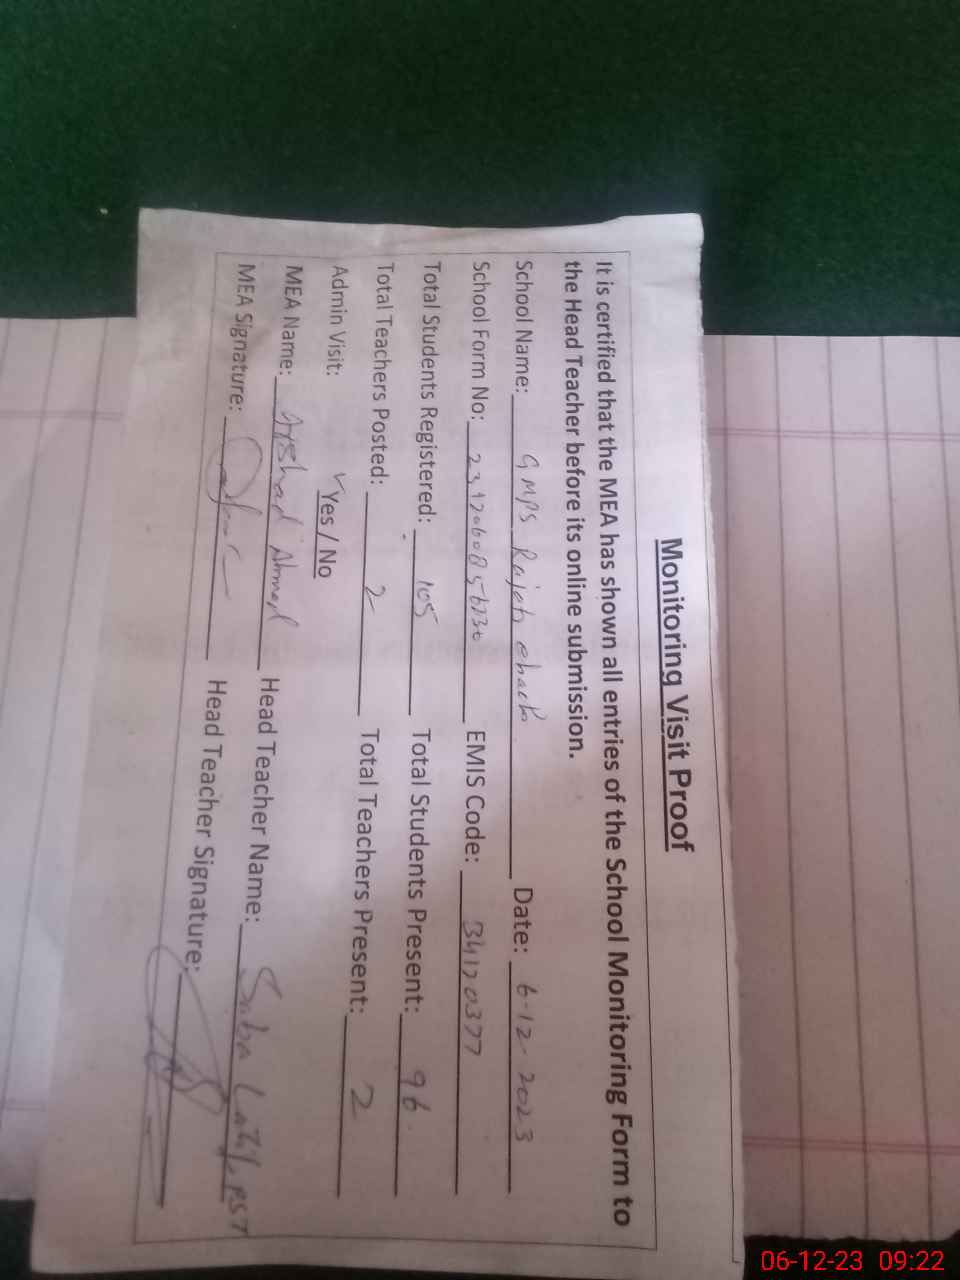 Monitoring Visit Proof
It is certified that the MEA has shown all entries of the School Monitoring Form to
the Head Teacher before its online submission.
School Name: GMPS Rajab chack Date: 6-12-2023
School Form No: EMIS Code: 34120377
Total Students Registered: 105 Total Students Present: 96
Total Teachers Posted: 2 Total Teachers Present: 2
Admin Visit: Yes / No
MEA Name: Arshad Ahmed Head Teacher Name: Saba Latif, PST
MEA Signature: Head Teacher Signature:
06-12-23 09:22